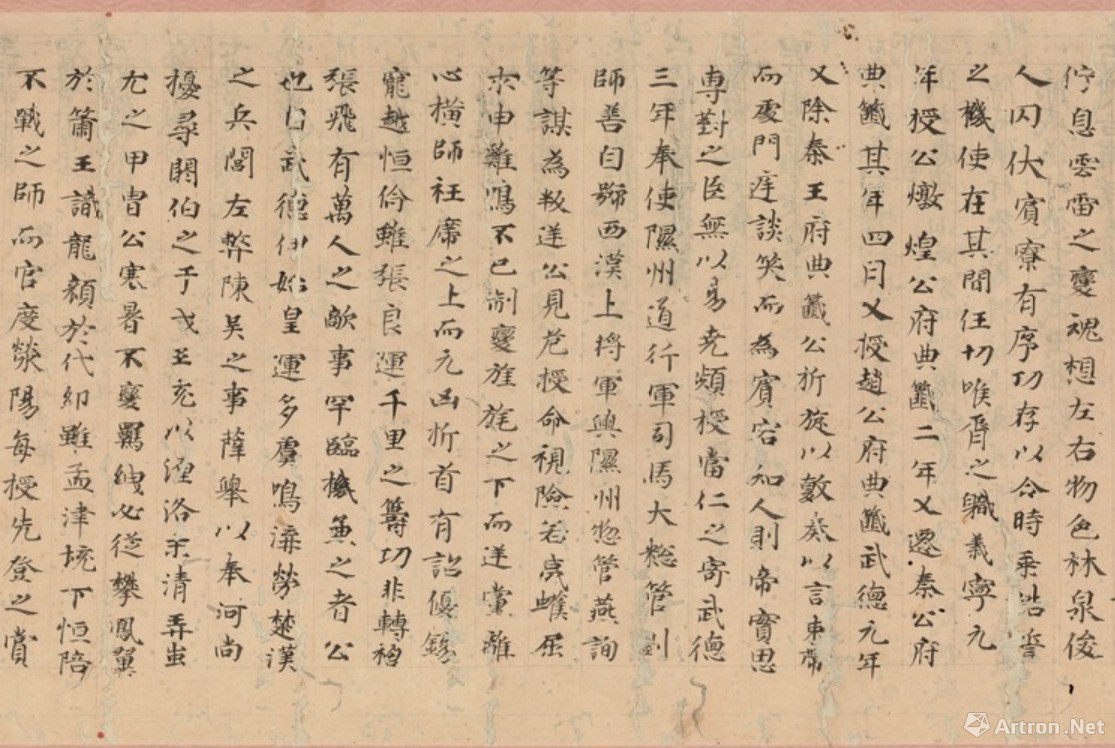 佇息雲雷之變魂想左右物色林泉俊
人囚伏賓寮有序功存以令時乘誥誓
之機使在其間任切喉脣之職義寧元
年授公燉煌公府典籤二年又遷秦公府
典籤其年四月又授趙公府典籤武德元年
又除秦王府典籤公折旋以敷奏以言束帶
而處門庭談笑而為賓客知人則帝實思
專對之臣無以易堯頻授當仁之寄武德
三年奉使隰州道行軍司馬大揔管劉
師善自號西漢上將軍與隰州揔管燕詢
等謀為叛逆公見危授命視險若夷蠖屈
求申雞鳴不已制變旌旄之下而逆黨離
心橫師衽席之上而元凶折首有詔優錫
寵越恒倫雖張良運千里之籌功非轉禍
張飛有萬人之敵事罕臨機兼之者公
也自武德伊始皇運多虞鳴滍勞楚漢
之兵閭左弊陳吳之事薩舉以奉河尚
擾尋閼伯之于戈王充以溼洛未清弄蚩
尤之甲冑公寒暑不變羈絏必從攀鳳翼
於簫王識龍顏於代邸雖孟津垸下恒陪
不戰之師而官度滎陽每授先登之賞
Artron.Net